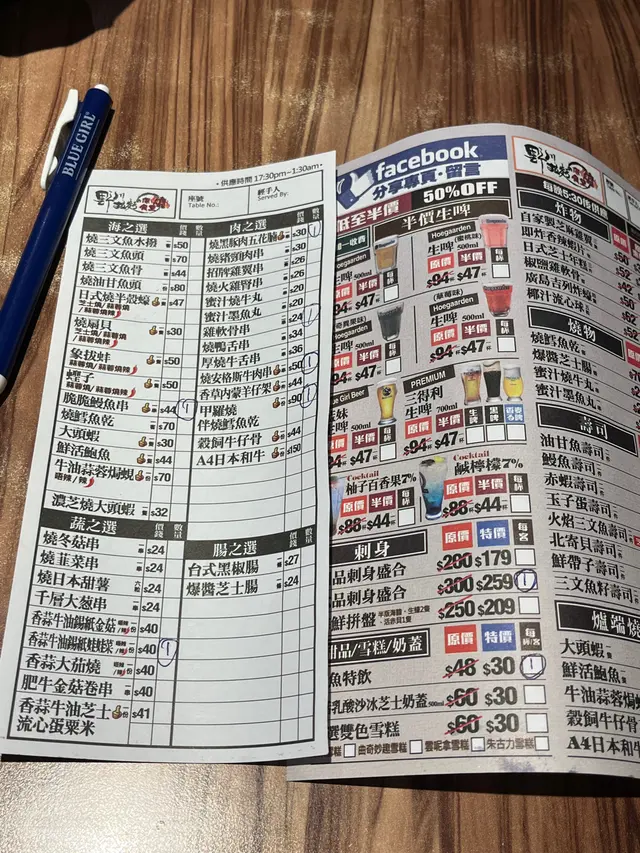 BLUE GIRL
• 供應時間 17:30pm~1:30am •
座號
Table No.:
輕手人
Served By:
海之選 價錢 數量
燒三文魚水撥 $50
燒三文魚頭 $70
燒三文魚骨 $44
燒油甘魚頭 $80
日式燒半殼蠔 $47
芝士燒/蒜蓉燒/蒜蓉燒辣
燒扇貝 $30
芝士燒/蒜蓉燒/蒜蓉燒辣
象拔蚌 $50
蒜蓉燒/蒜蓉燒辣
蟶子 $50
蒜蓉燒/蒜蓉燒辣
脆脆鰻魚串 $44 1
燒鱈魚乾 $70
大頭蝦 $30
鮮活鮑魚 $44
牛油蒜蓉焗蜆 $70
唔辣/辣
濃芝燒大頭蝦 $32
蔬之選 價錢 數量
燒冬菇串 $24
燒韮菜串 $24
燒日本甜薯 $24
千層大葱串 $24
香蒜牛油錫紙金菇 $40
香蒜牛油錫紙娃娃菜 $40 1
香蒜大茄燒 $40
肥牛金菇卷串 $40
香蒜牛油芝士 $41
流心蛋粟米
肉之選 價錢 數量
燒黑豚肉五花腩 $30 1
燒豬頸肉串 $30
招牌雞翼串 $26
燒火雞腎串 $26
蜜汁燒牛丸
蜜汁墨魚丸 $24 1
雞軟骨串
燒鴨舌串 $36
厚燒牛舌串 $50 1
燒安格斯牛肉串 $44
香草內蒙羊仔架 $90 1
甲羅燒
伴燒鱈魚乾
穀飼牛仔骨 $44
A4日本和牛 $150
腸之選 價錢 數量
台式黑椒腸 $27
爆醬芝士腸 $24
facebook
分享專頁·留言
50%OFF
半價生啤
Hoegaarden
生啤 500ml
原價 半價 每杯
$94 $47
Hoegaarden
(蜜桃味)
生啤 500ml
原價 半價 每杯
$94 $47
Hoegaarden
生啤 500ml
原價 半價 每杯
$94 $47
(草莓味)
Hoegaarden
生啤 500ml
原價 半價 每杯
$94 $47
Girl Beer
生啤 500ml
原價 半價 每杯
$47
PREMIUM
三得利
生啤 700ml
原價 半價
$94 $47
生啤 黑啤
Cocktail
柚子百香果7%
原價 半價 每杯
$88 $44
Cocktail
鹹檸檬7%
原價 半價 每杯
$88 $44
刺身 原價 特價 每客
品刺身盛合 $200 $179
品刺身盛合 $300 $259 1
鮮拼盤 $250 $209
甜品/雪糕/奶蓋 原價 特價
魚特飲 $48 $30 1
乳酸沙冰芝士奶蓋 500ml $60 $30
選雙色雪糕 $60 $30
曲奇妙趣雪糕 雲呢拿雪糕 朱古力雪糕
每晚5:30後供應
炸物
自家製芝麻雞翼
即炸香辣蝦片
日式芝士年糕
椒鹽雞軟骨
廣島吉列炸蠔
椰汁流心球
燒物
燒鱈魚乾
爆醬芝士腸
蜜汁燒牛丸
蜜汁墨魚丸
壽司
油甘魚壽司
鰻魚壽司
赤蝦壽司
玉子蛋壽司
火焰三文魚壽司
北寄貝壽司
鮮帶子壽司
三文魚籽壽司
爐端燒
大頭蝦
鮮活鮑魚
牛油蒜蓉
穀飼牛仔骨
A4日本和牛